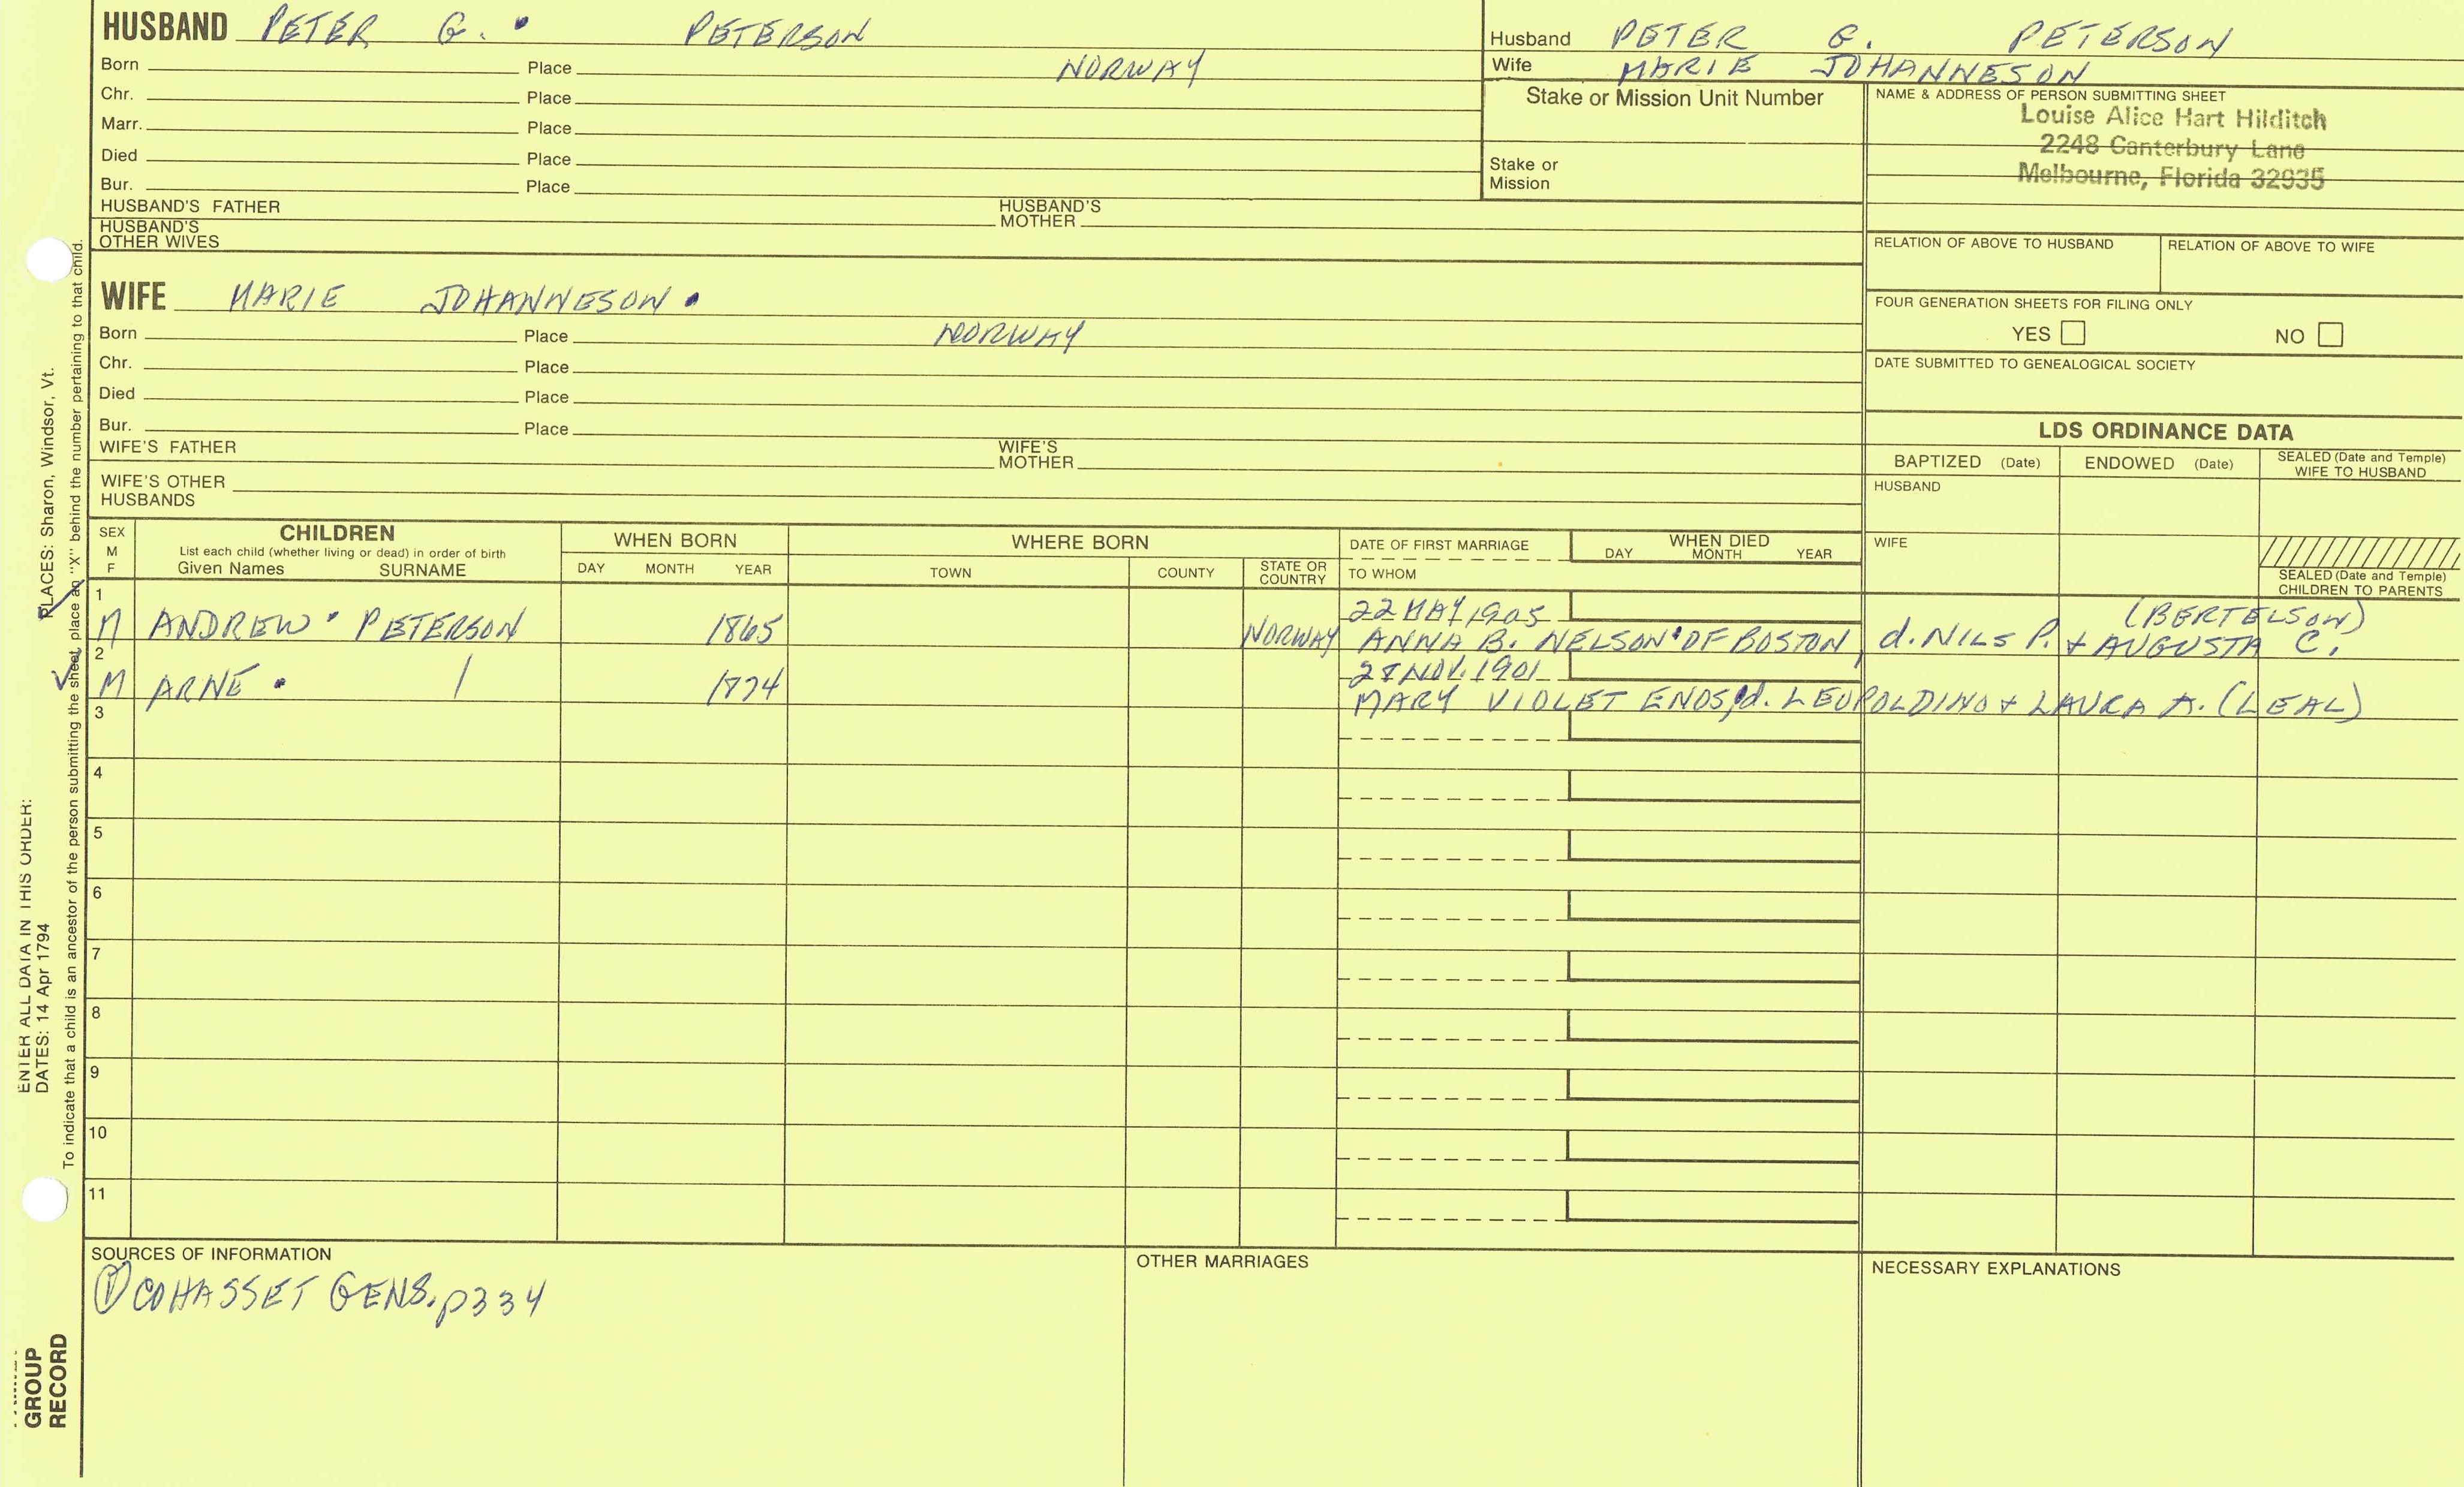 HUSBAND PETER G. PETERSON
Born Place NORWAY
Chr. Place
Marr. Place
Died Place
Bur. Place
HUSBAND'S FATHER HUSBAND'S MOTHER
HUSBAND'S OTHER WIVES
Husband PETER G. PETERSON
Wife MARIE JOHANNESON
Stake or Mission Unit Number
Stake or Mission
NAME & ADDRESS OF PERSON SUBMITTING SHEET
Louise Alice Hart Hilditch
2248 Canterbury Lane
Melbourne, Florida 32935
RELATION OF ABOVE TO HUSBAND RELATION OF ABOVE TO WIFE
FOUR GENERATION SHEETS FOR FILING ONLY
YES NO
DATE SUBMITTED TO GENEALOGICAL SOCIETY
WIFE MARIE JOHANNESON
Born Place NORWAY
Chr. Place
Died Place
Bur. Place
WIFE'S FATHER WIFE'S MOTHER
WIFE'S OTHER HUSBANDS
LDS ORDINANCE DATA
BAPTIZED (Date) ENDOWED (Date) SEALED (Date and Temple) WIFE TO HUSBAND
HUSBAND
WIFE
SEALED (Date and Temple) CHILDREN TO PARENTS
SEX M F
CHILDREN
List each child (whether living or dead) in order of birth
Given Names SURNAME
WHEN BORN
DAY MONTH YEAR
WHERE BORN
TOWN COUNTY STATE OR COUNTRY
DATE OF FIRST MARRIAGE
TO WHOM
WHEN DIED
DAY MONTH YEAR
1 22 MAY 1905 (BERTELSON)
M ANDREW PETERSON 1865 NORWAY ANNA B. NELSON OF BOSTON, d. NILS P. + AUGUSTA C.
2 27 NOV. 1901
M ARNE 1874 MARY VIOLET ENOS, d. LEOPOLDINO + LAURA A. (LEAL)
3
4
5
6
7
8
9
10
11
SOURCES OF INFORMATION
① COHASSET GENS. p334
OTHER MARRIAGES
NECESSARY EXPLANATIONS
GROUP RECORD
ENTER ALL DATA IN THIS ORDER:
DATES: 14 Apr 1794 PLACES: Sharon, Windsor, Vt.
To indicate that a child is an ancestor of the person submitting the sheet, place an "X" behind the number pertaining to that child.